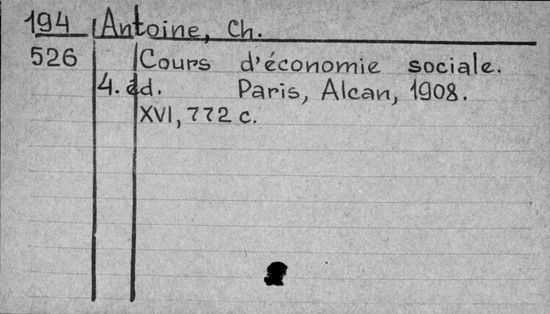 194 Antoine, Ch.
526 Cours d'économie sociale.
4. éd. Paris, Alcan, 1908.
XVI, 772 c.